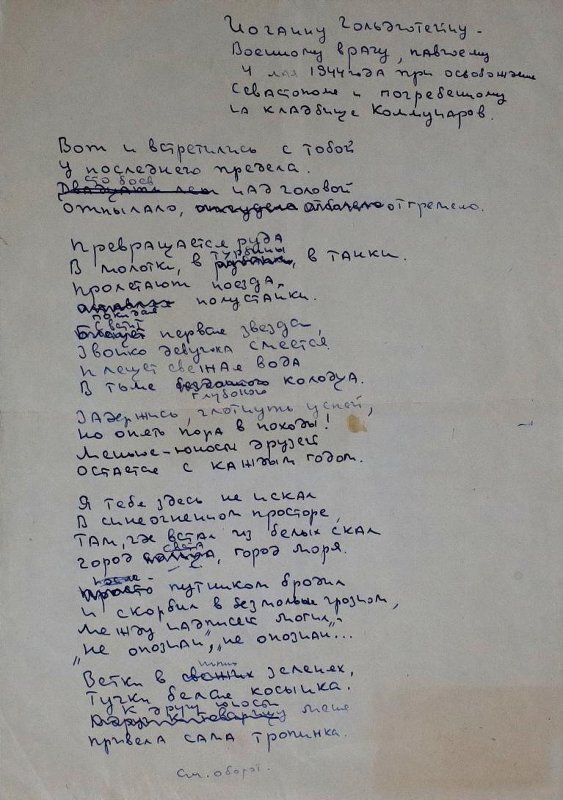 Иоганну Гольдготейну -
Военному врачу, павшему
4 мая 1944 года при освобождении
Севастополя и погребенному
на кладбище Коммунаров.
Вот и встретились с тобой
У последнего предела.
Сто боев
Двадцать лет над головой
Отпылало, отгремело.
Превращается руда
турбины
В молотки, в , в танки.
Пролетают поезда,
покидая
полустанки.
Светит
Блещет первая звезда,
Звонко девушка смеется.
Плещет свежая вода
В тьме бездонного колодца.
глубокого
Задержись, глотнуть успей,
Но опять пора в походы!
Меньше - юности друзей
Остается с каждым годом.
Я тебя здесь не искал
В синеогненном просторе,
Там, где встал из белых скал
света
Город , город моря.
Просто путником бродил
И скорбил в безмолвье грозном,
Между надписей могил -
„Не опознан", „не опознан...
Ветки в свежих зеленях,
Тучки белая косынка.
К другу юности
меня
Привела сама тропинка.
См. оборот.